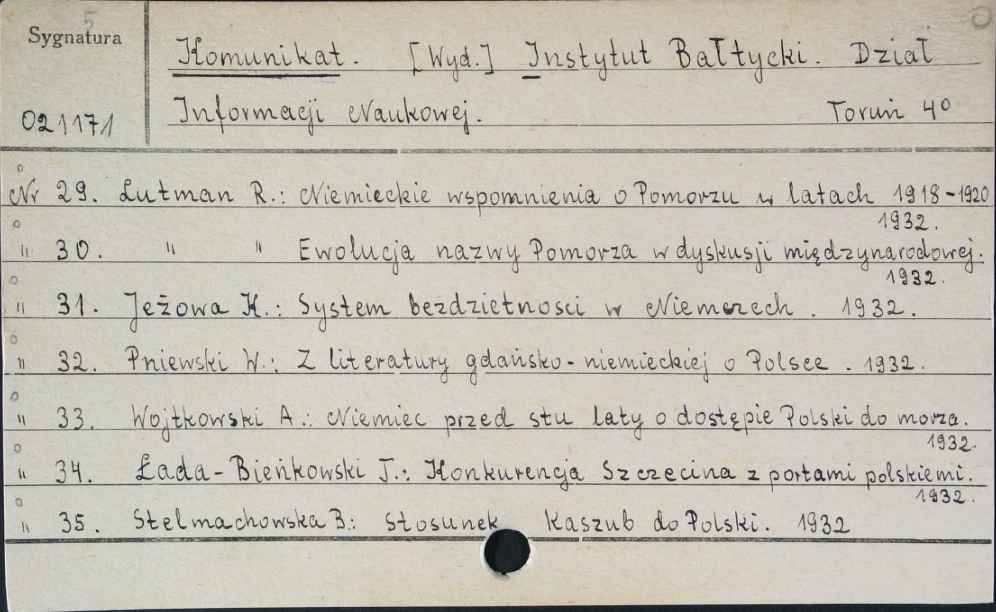 5
Sygnatura
Komunikat. [Wyd.] Instytut Bałtycki. Dział
Informacji Naukowej. Toruń 4°
021171
Nr 29. Lutman R.: Niemieckie wspomnienia o Pomorzu w latach 1918-1920
1932.
" 30. " " Ewolucja nazwy Pomorza w dyskusji międzynarodowej.
1932.
" 31. Jeżowa K.: System bezdzietnosci w Niemczech. 1932.
" 32. Pniewski W.: Z literatury gdańsko-niemieckiej o Polsce. 1932.
" 33. Wojtkowski A.: Niemiec przed stu laty o dostępie Polski do morza.
1932.
" 34. Łada-Bieńkowski J.: Konkurencja Szczecina z portami polskiemi.
1932.
" 35. Stelmachowska B.: Stosunek Kaszub do Polski. 1932